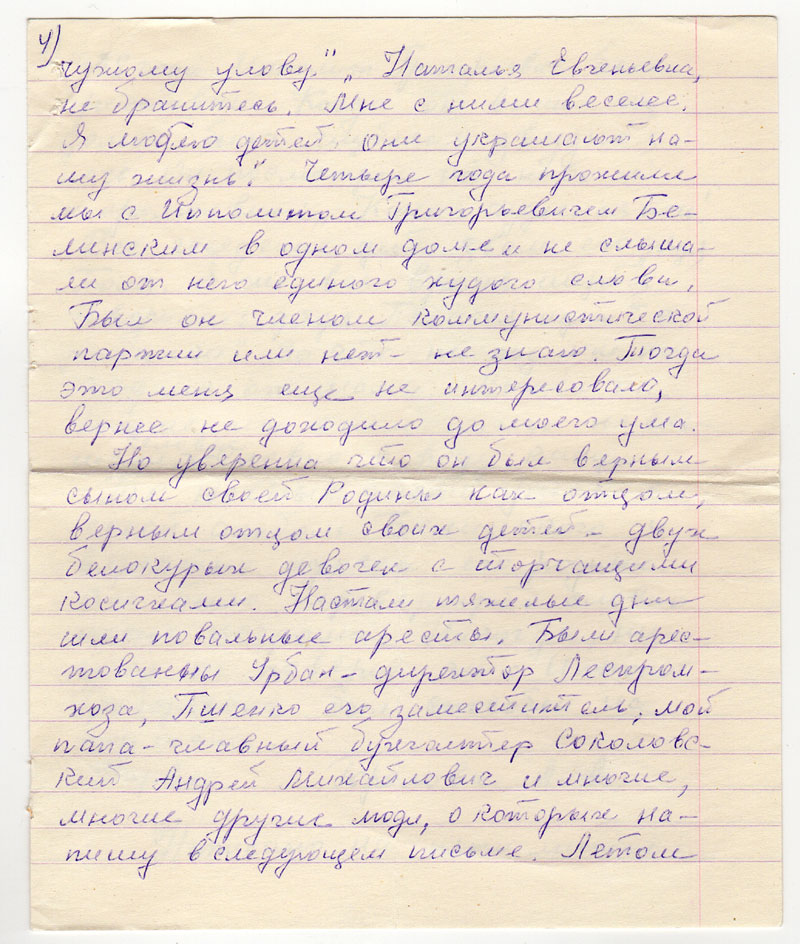 4)
чужому улову." „Наталья Евгеньевна,
не бранитесь. Мне с ними веселее.
Я люблю детей, они украшают на-
шу жизнь." Четыре года прожили
мы с Ипполитом Григорьевичем Бе-
линским в одном доме и не слыша-
ли от него единого худого слова.
Был он членом коммунистической
партии или нет - не знаю. Тогда
это меня еще не интересовало,
вернее не доходило до моего ума.
Но уверенна что он был верным
сыном своей Родины как отцом,
верным отцом своих детей - двух
белокурых девочек с торчащими
косичками. Настали тяжелые дни
шли повальные аресты. Были арес-
тованы Урбан - директор Леспром-
хоза, Пшенко его заместитель, мой
папа - главный бухгалтер Соколовс-
кий Андрей Михайлович и многие,
многие другие люди, о которых на-
пишу в следующем письме. Летом